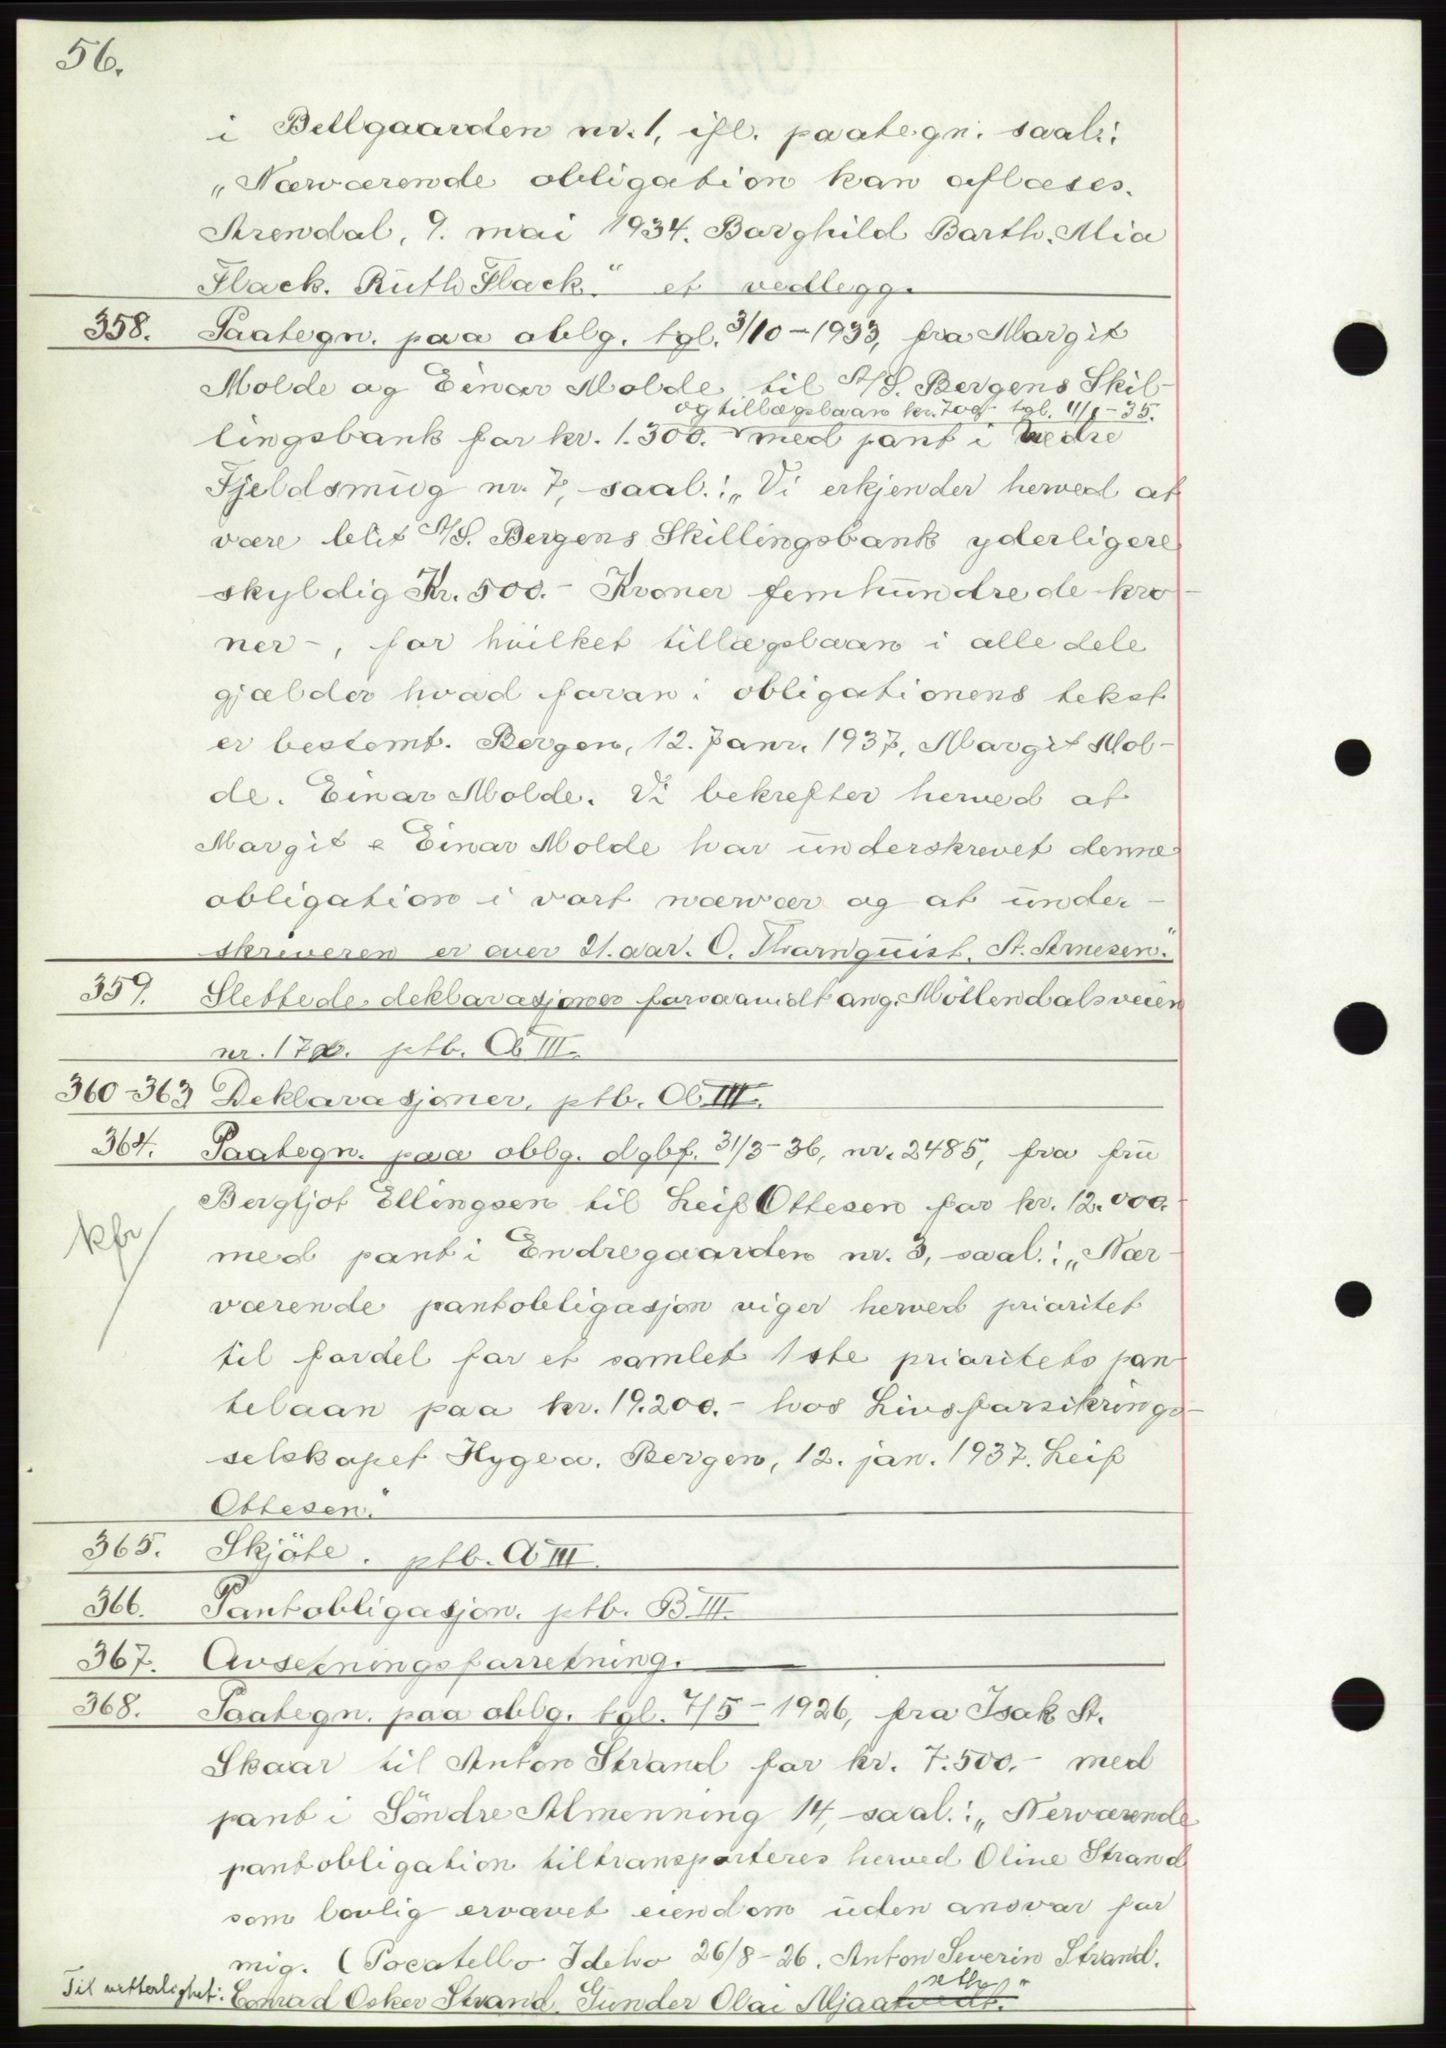 56.
i Bellgaarden nr. 1, ifl. paategn. saal:
„Nærværende obligation kan aflæses.
Arendal, 9. mai 1934. Borghild Barth. Mia
Flack. Ruth Flack." et vedlegg.
358. Paategn. paa oblg. tgl. 3/10-1933, fra Margit
Molde og Einar Molde til A/S. Bergens Skil-
og tillægslaan kr. 700.- tgl. 11/1-35.
lingsbank for kr. 1.300.- med pant i nedre
Fjeldsmug nr. 7, saal.: „Vi erkjender herved at
være blit A/S. Bergens Skillingsbank yderligere
skyldig Kr. 500.- Kroner femhundrede kro-
ner-, for hvilket tillægslaan i alle dele
gjælder hvad foran i obligationens tekst
er bestemt. Bergen, 12. Janr. 1937. Margit Mol-
de. Einar Molde. Vi bekrefter herved at
Margit & Einar Molde har underskrevet denne
obligation i vort nærvær og at under-
skriveren er over 21. aar. C. Thornquist. St. Arnesen."
359. Slettede deklarasjoner forsaavidt ang. Möllendalsveien
nr. 17 ptb. Cb III.
360-363 Deklarasjoner, ptb. Cb III.
364. Paategn. paa oblg. dgbf. 31/3-36, nr. 2485, fra fru
Bergljot Ellingsen til Leif Ottesen for kr. 12.000.-
kfr
med pant i Endregaarden nr. 3, saal.: „Nær-
værende pantobligasjon viger herved prioritet
til fordel for et samlet 1ste prioritets pan-
telaan paa kr. 19.200.- hos Livsforsikrings-
selskapet Hygea. Bergen, 12. jan. 1937. Leif
Ottesen."
365. Skjöte. ptb. A III.
366. Pantobligasjon. ptb. B III.
367. Avsetningsforretning.
368. Paategn. paa oblg. tgl. 7/5-1926, fra Isak St.
Skaar til Anton Strand for kr. 7.500.- med
pant i Söndre Almenning 14, saal.: „Nerværende
pantobligation tiltransporteres herved Oline Strand
som lovlig ervævet eiendom uden ansvar for
mig. (Pocatello Ideho 26/8-26. Anton Severin Strand.
Til vitterlighet: Conrad Osker Strand. Gunder Olai Mjaat